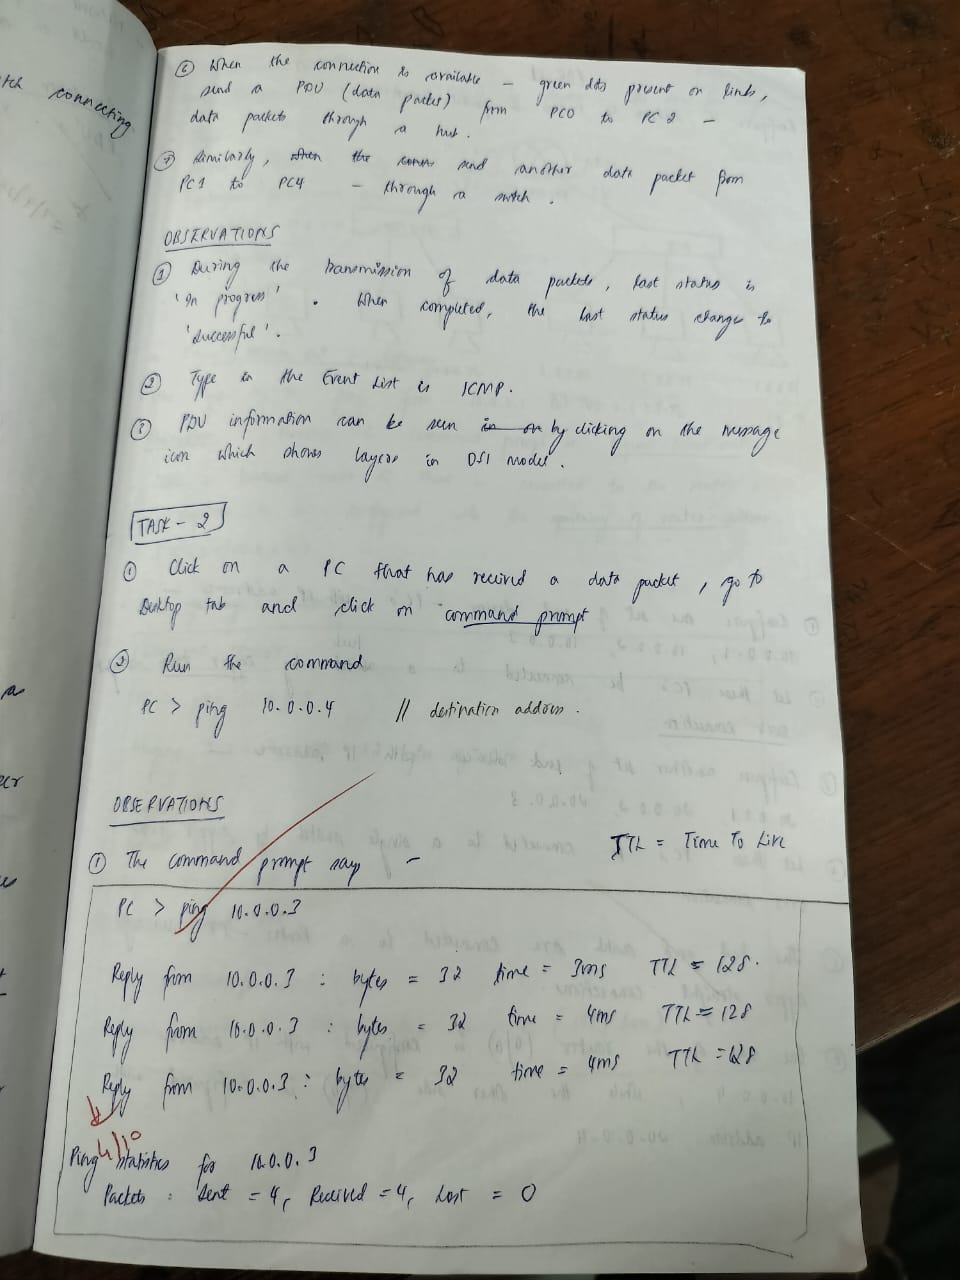 tch connecting
⑥ When the connection is available - green dots present on links,
send a PDU (data packet) from PC0 to PC2 -
data packets through a hub.
⑦ Similarly, when the conn send another data packet from
PC1 to PC4 - through a switch.
OBSERVATIONS
① During the transmission of data packets, last status is
'In progress'. When completed, the last status changes to
'successful'.
② Type in the Event List is ICMP.
③ PDU information can be seen in on by clicking on the message
icon which shows layers in OSI model.
TASK - 2
① Click on a PC that has received a data packet, go to
Desktop tab and click on command prompt
② Run the command
PC > ping 10.0.0.4 // destination address.
OBSERVATIONS
TTL = Time To Live
① The command prompt says -
PC > ping 10.0.0.3
Reply from 10.0.0.3 : bytes = 32 time = 3ms TTL = 128.
Reply from 10.0.0.3 : bytes = 32 time = 4ms TTL = 128
Reply from 10.0.0.3 : bytes = 32 time = 4ms TTL = 128
Ping statistics for 10.0.0.3
Packets : Sent = 4, Received = 4, Lost = 0